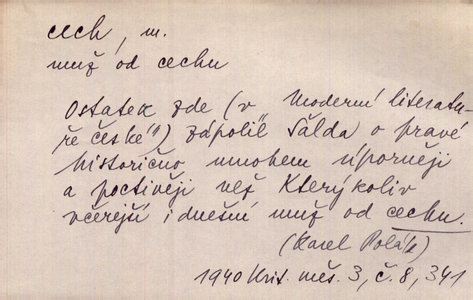 cech, m.
muž od cechu
Ostatek zde (v „Moderní literatu-
ře české“) zápolil Šalda o pravé
historično mnohem úporněji
a poctivěji než kterýkoliv
včerejší i dnešní muž od cechu.
(Karel Polák)
1940 Krit. měs. 3, č. 8, 341